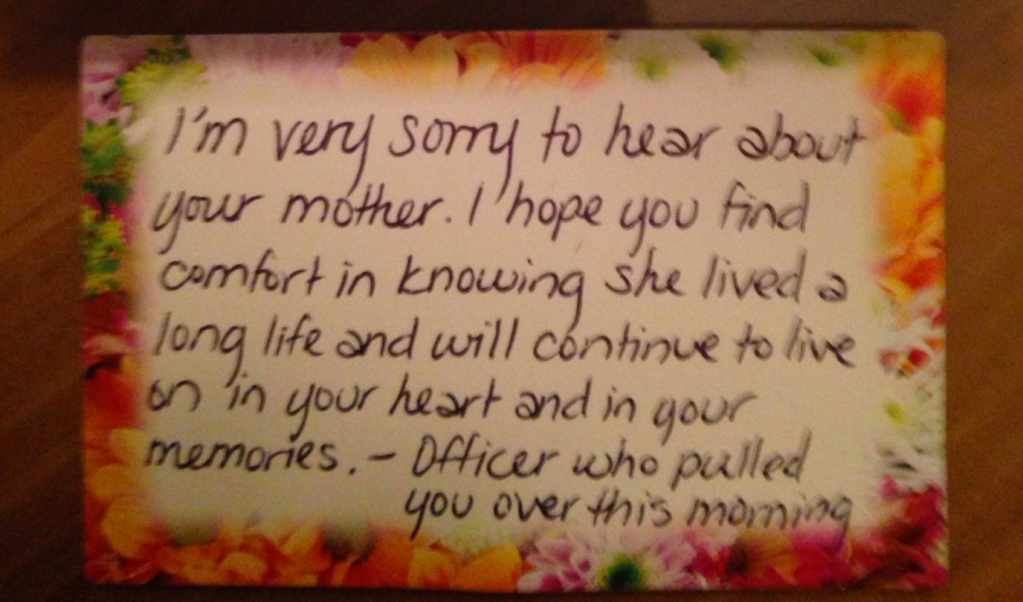 I'm very sorry to hear about
your mother. I hope you find
comfort in knowing she lived a
long life and will continue to live
on in your heart and in your
memories. - Officer who pulled
you over this morning